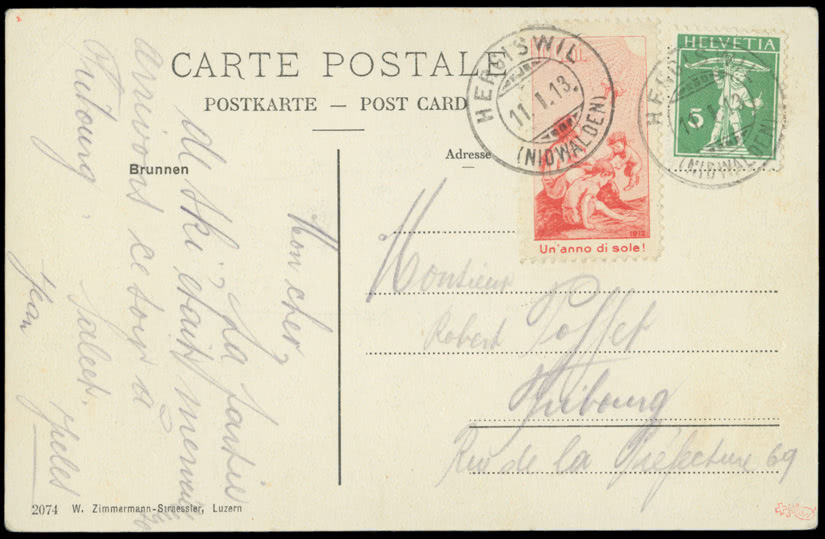 CARTE POSTALE
POSTKARTE — POST CARD
Brunnen
Adresse
HERGISWIL
11.1.13.
(NIDWALDEN)
Un'anno di sole!
1912
HELVETIA
5
HERGISWIL
11.1.13.
(NIDWALDEN)
Mon cher,
La partie
de ski était
arrivons ce soir à
Fribourg.
Salut.
Jean
Monsieur
Robert
Fribourg
Rue de la Préfecture 69
2074 W. Zimmermann-Straessler, Luzern